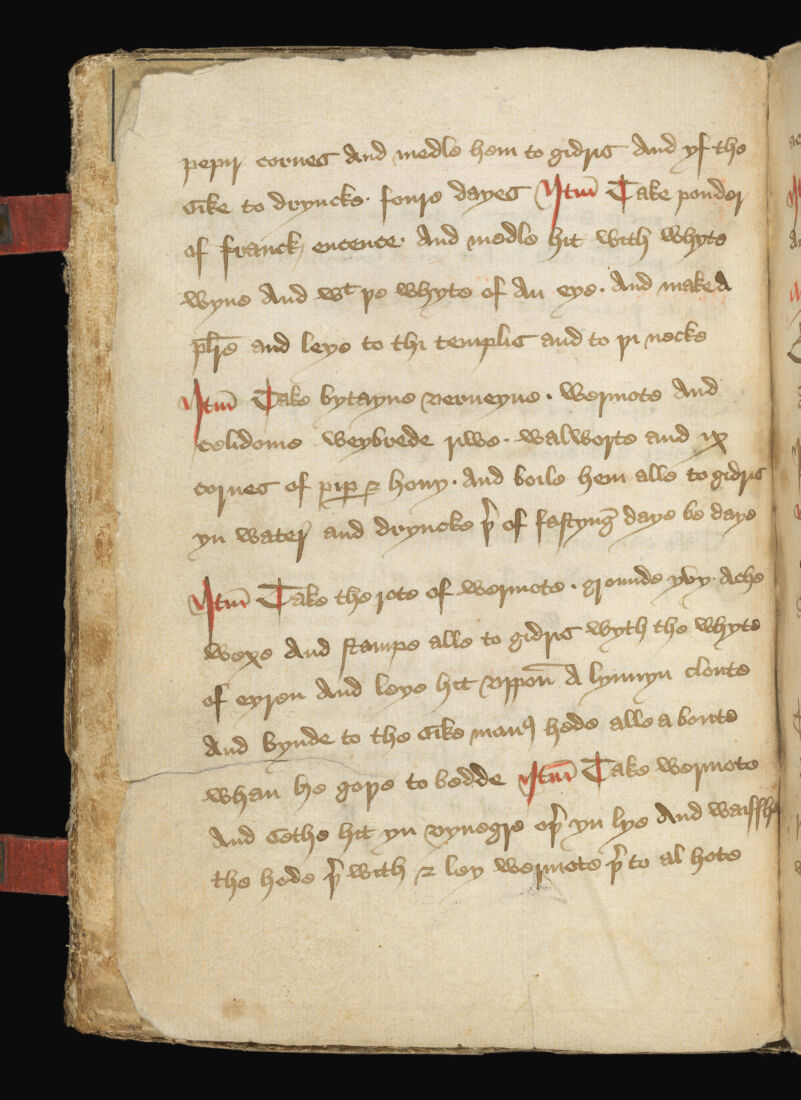 pepir cornes And medle hem to gidris And yf the
sike to dryncke · foure dayes Itm̄ Take pouder
of franck encence · And medle hit with whyte
wyne And wt þe whyte of An eye · And make A
plr̄e and leye to thi templis and to þi necke
Itm̄ Take bytayne verueyne · wermote And
celidome weybrede riwe · walworte and ix
cornes of pip ⁊ hony · And boile hem alle to gidris
yn water and dryncke þr of fastynḡ daye be daye
Itm̄ Take the rote of wermote · grounde yvy · Ache
wexe And stampe alle to gidris wyth the whyte
of eyren And leye hit vppon̄ A lynnyn cloute
And bynde to the sike manꝯ hede alle a boute
whan he goþe to bedde Itm̄ Take wermote
And sethe hit yn vynegre oþr yn lye And waissħe
the hede þr with ⁊ ley wermote þr to al hote